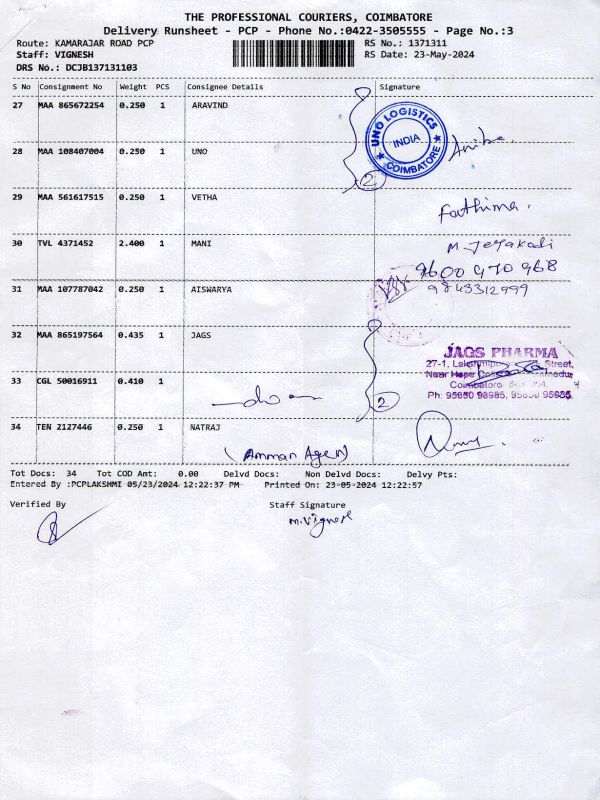 THE PROFESSIONAL COURIERS, COIMBATORE
Delivery Runsheet - PCP - Phone No.:0422-3505555 - Page No.:3
Route: KAMARAJAR ROAD PCP RS No.: 1371311
Staff: VIGNESH RS Date: 23-May-2024
DRS No.: DCJB137131103
S No Consignment No Weight PCS Consignee Details Signature
27 MAA 865672254 0.250 1 ARAVIND
UNO LOGISTICS
INDIA
COIMBATORE
28 MAA 108407004 0.250 1 UNO
2
29 MAA 561617515 0.250 1 VETHA
Faathima.
30 TVL 4371452 2.400 1 MANI
M. Jeyakodi
9600 470 968
31 MAA 107787042 0.250 1 AISWARYA
9843312999
32 MAA 865197564 0.435 1 JAGS
JAGS PHARMA
27-1, Street,
Near Hope
Coimbatore
Ph: 95850 98985, 95850 95985
33 CGL 50016911 0.410 1
do
2
34 TEN 2127446 0.250 1 NATRAJ
(Amman Agen)
Tot Docs: 34 Tot COD Amt: 0.00 Delvd Docs: Non Delvd Docs: Delvy Pts:
Entered By :PCPLAKSHMI 05/23/2024 12:22:37 PM Printed On: 23-05-2024 12:22:57
Verified By Staff Signature
M.Vignesh